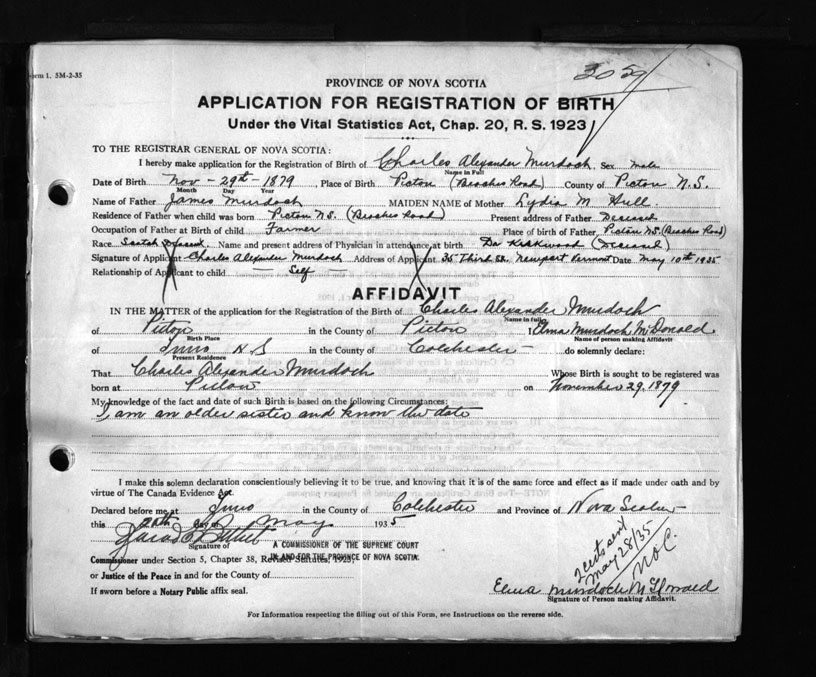 orm 1. 5M-2-35
3059
PROVINCE OF NOVA SCOTIA
APPLICATION FOR REGISTRATION OF BIRTH
Under the Vital Statistics Act, Chap. 20, R. S. 1923
TO THE REGISTRAR GENERAL OF NOVA SCOTIA:
I hereby make application for the Registration of Birth of Charles Alexander Murdoch, Sex male
Name in Full
Date of Birth Nov - 29th - 1879, Place of Birth Picton (Beaches Road) County of Picton N.S.
Month Day Year
Name of Father James Murdoch MAIDEN NAME of Mother Lydia M Hull
Residence of Father when child was born Picton N.S. (Beaches Road) Present address of Father Deceased
Occupation of Father at Birth of child Farmer Place of birth of Father, Picton N.S. (Beaches Road)
Race Scotch Name and present address of Physician in attendance at birth Dr Kirkwood (Deceased)
Signature of Applicant Charles Alexander Murdoch Address of Applicant 35 Third St. Newport Vermont Date May 10th 1935
Relationship of Applicant to child — Self —
AFFIDAVIT
IN THE MATTER of the application for the Registration of Birth of Charles Alexander Murdoch
Name in full
of Picton in the County of Picton I Elma Murdoch McDonald
Birth Place Name of person making Affidavit
of Truro N S in the County of Colchester do solemnly declare:
Present Residence
That Charles Alexander Murdoch Whose Birth is sought to be registered was
born at Pictou on November 29, 1879
My knowledge of the fact and date of such Birth is based on the following Circumstances:
I am an older sister and know the date
I make this solemn declaration conscientiously believing it to be true, and knowing that it is of the same force and effect as if made under oath and by
virtue of The Canada Evidence Act.
Declared before me at Truro in the County of Colchester and Province of Nova Scotia
this 20th day of May 1935
Signature of A COMMISSIONER OF THE SUPREME COURT
IN AND FOR THE PROVINCE OF NOVA SCOTIA
Commissioner under Section 5, Chapter 38, Revised Statutes, 1923,
or Justice of the Peace in and for the County of
If sworn before a Notary Public affix seal.
2 certs sent
May 28/35
N.O.C.
Elma Murdoch McDonald
Signature of Person making Affidavit.
For Information respecting the filling out of this Form, see Instructions on the reverse side.